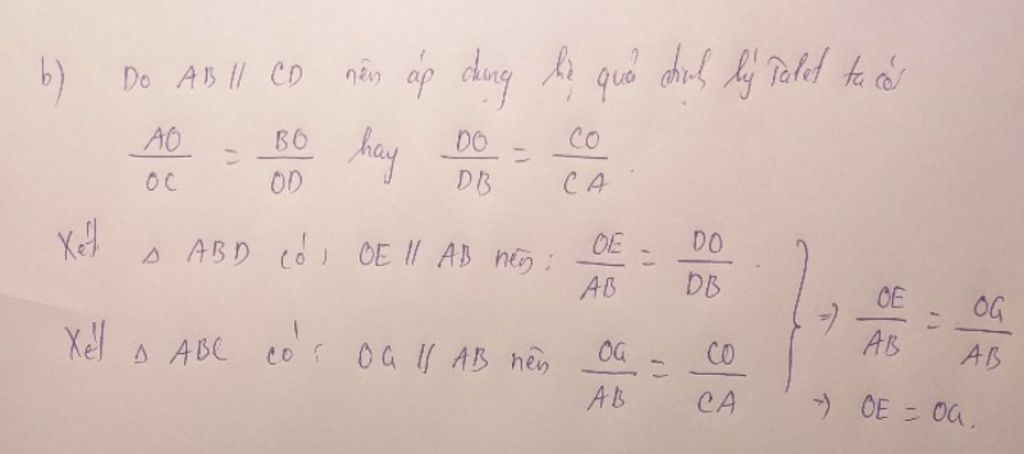 b) Do AB // CD nên áp dụng hệ quả định lý Talet ta có
AO/OC = BO/OD hay DO/DB = CO/CA.
Xét Δ ABD có: OE // AB nên: OE/AB = DO/DB.
Xét Δ ABC có: OG // AB nên OG/AB = CO/CA
=> OE/AB = OG/AB
=> OE = OG.